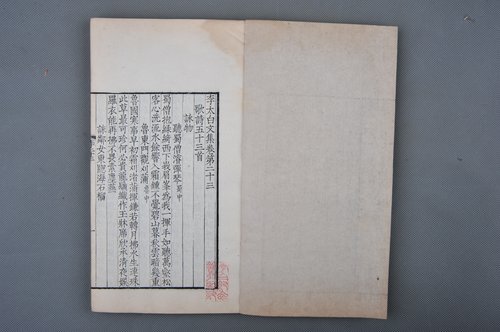 李太白文集卷第二十三
歌詩五十三首
詠物
聽蜀僧濬彈琴 蜀中
蜀僧抱綠綺西下峨眉峯為我一揮手如聽萬壑松
客心洗流水餘響入霜鐘不覺碧山暮秋雲暗幾重
魯東門觀刈蒲 魯中
魯國寒事早初霜刈渚蒲揮鎌若轉月拂水生連珠
此草最可珍何必貴龍鬚織作玉牀席欣承清夜娛
羅衣能再拂不畏素塵蕪
詠鄰女東窗海石榴